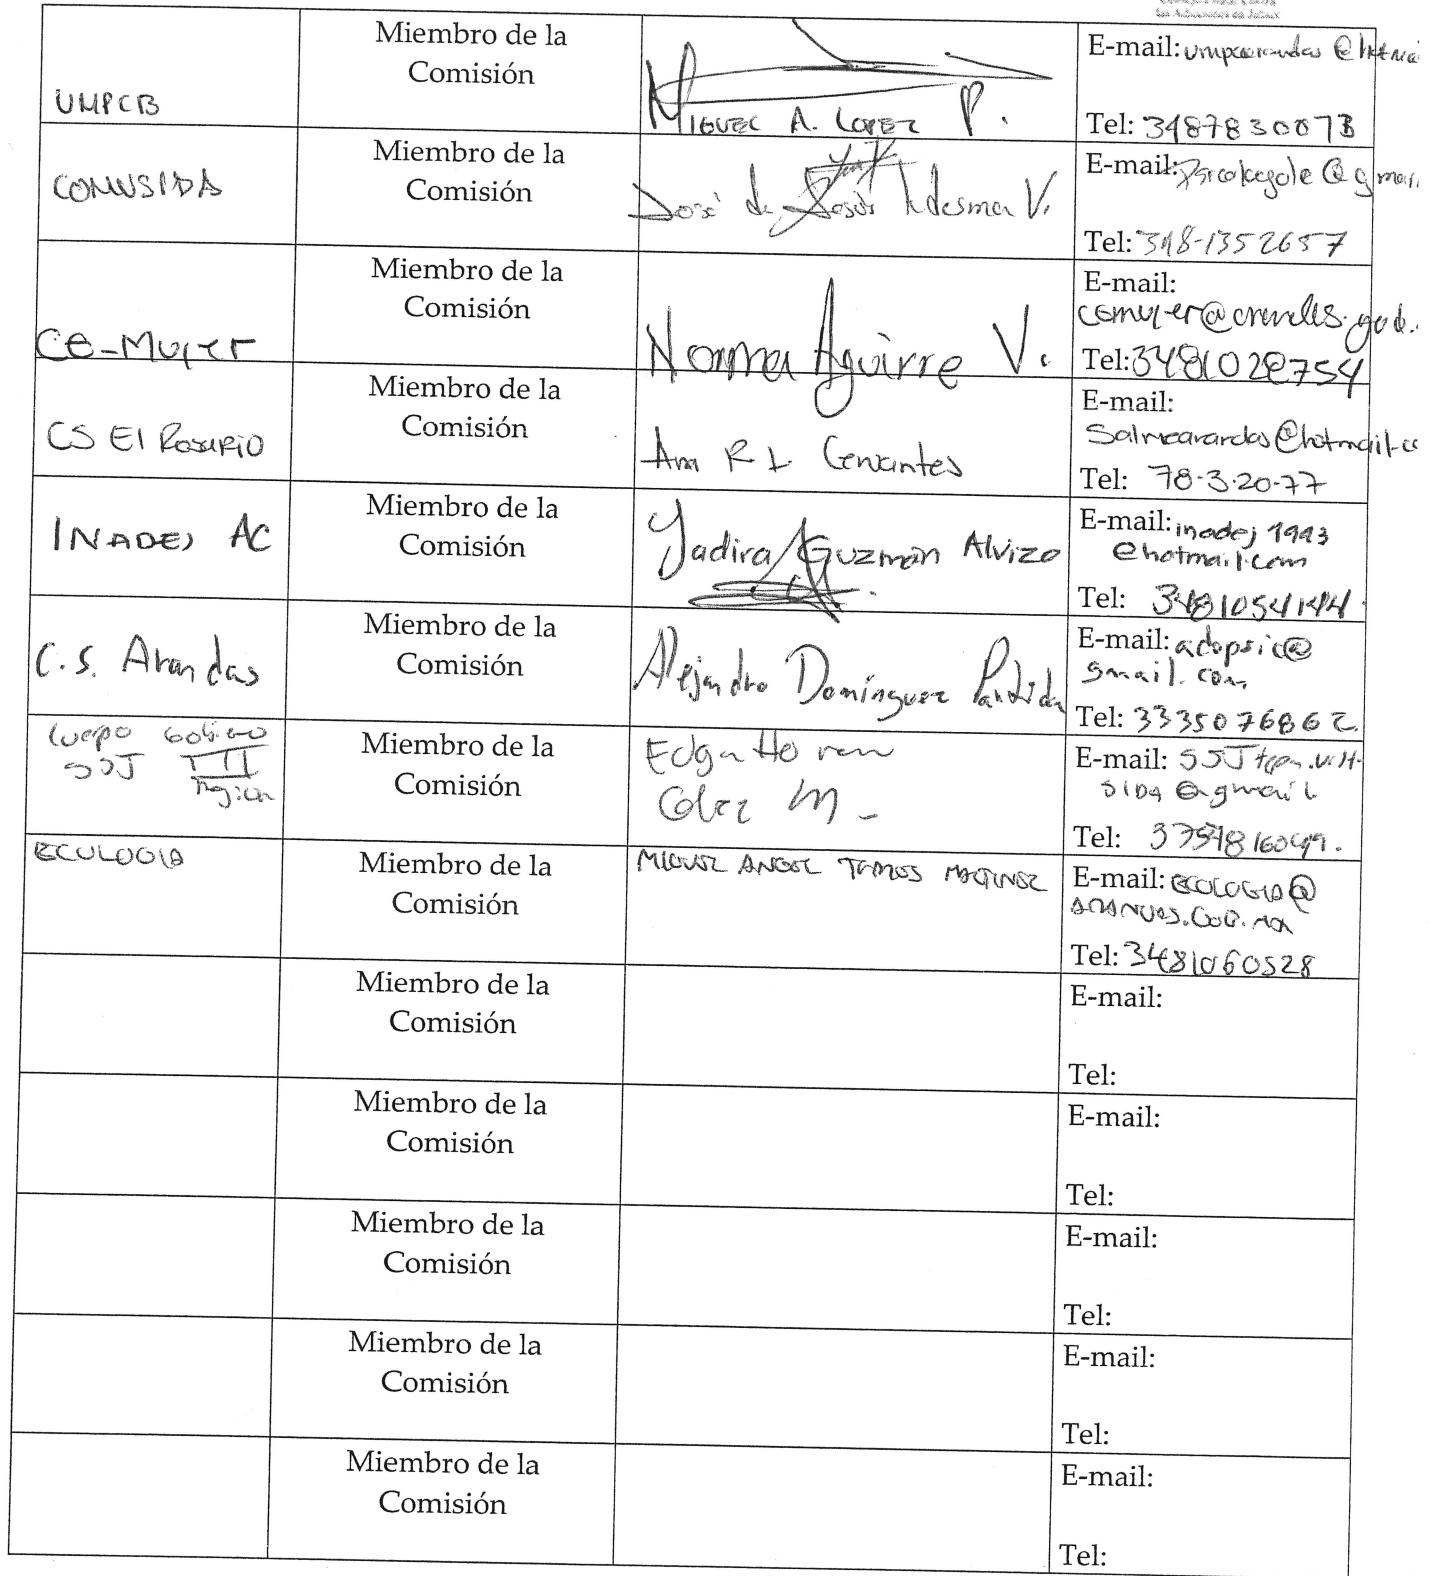 las Adicciones en Jalisco
UMPCB
Miembro de la
Comisión
Miguel A. Lopez P.
E-mail:
Tel: 3487830073
COMUSIDA
Miembro de la
Comisión
José de Jesús Ledesma V.
E-mail:
Tel: 348-1352657
CE-Mujer
Miembro de la
Comisión
Norma Aguirre V.
E-mail:
Tel: 3481028754
CS El Rosario
Miembro de la
Comisión
Ana R L Cervantes
E-mail:
Salmearandas@hotmail.co
Tel: 78-3-20-77
INADEJ AC
Miembro de la
Comisión
Yadira Guzmán Alvizo
E-mail: inadej 1993
@hotmail.com
Tel: 3481054144
C.S. Arandas
Miembro de la
Comisión
Alejandro Domínguez Partida
E-mail: adopsic@
gmail.com
Tel: 3335076862
Cuerpo Gobierno
SSJ III
Región
Miembro de la
Comisión
Edga
M-
E-mail:
SIDA @gmail
Tel:
ECOLOGIA
Miembro de la
Comisión
MIGUEL ANGEL TORRES MARTINEZ
E-mail: ECOLOGIA@
ARANDAS.GOB.MX
Tel: 3481060528
Miembro de la
Comisión
E-mail:
Tel:
Miembro de la
Comisión
E-mail:
Tel:
Miembro de la
Comisión
E-mail:
Tel:
Miembro de la
Comisión
E-mail:
Tel:
Miembro de la
Comisión
E-mail:
Tel: